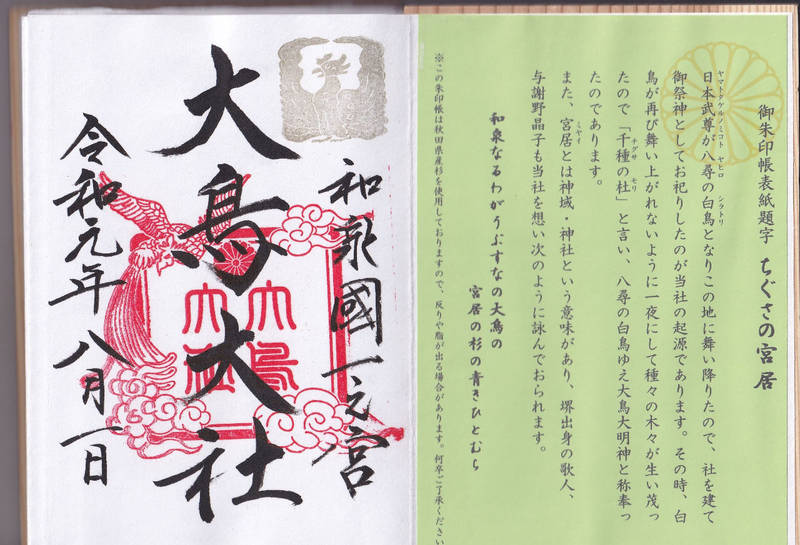 御朱印帳表紙題字 ちぐさの宮居
日本武尊が八尋の白鳥となりこの地に舞い降りたので、社を建て
ヤマトタケルノミコト ヤヒロ シラトリ
御祭神としてお祀りしたのが当社の起源であります。その時、白
鳥が再び舞い上がれないように一夜にして種々の木々が生い茂っ
たので「千種の杜」と言い、八尋の白鳥ゆえ大鳥大明神と称奉っ
チグサ モリ
たのであります。
また、宮居とは神域・神社という意味があり、堺出身の歌人、
ミヤイ
与謝野晶子も当社を想い次のように詠んでおられます。
和泉なるわがうぶすなの大鳥の
宮居の杉の青きひとむら
※この朱印帳は秋田県産杉を使用しておりますので、反りや脂が出る場合があります。何卒ご了承ください
和泉國一之宮
大鳥大社
大鳥
大社
令和元年八月一日